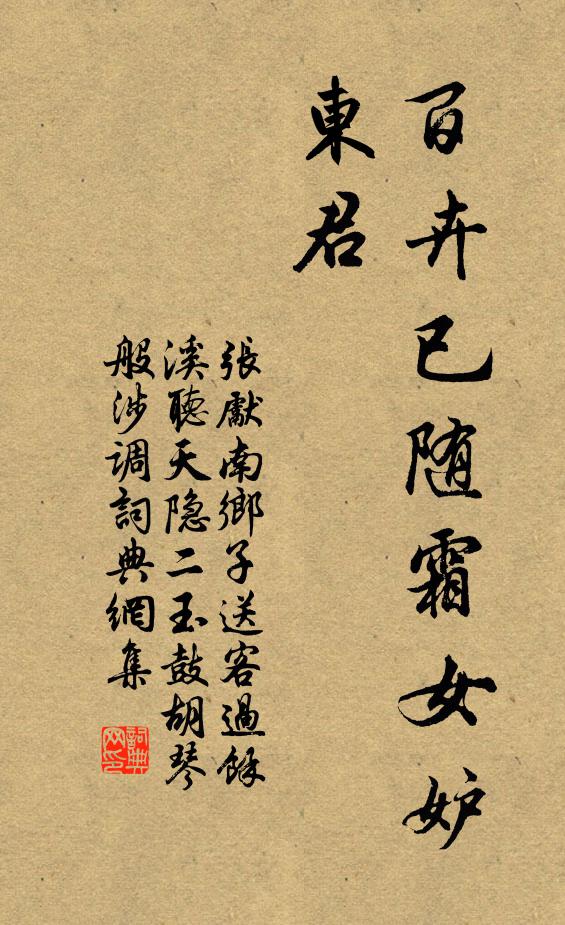 百卉已随霜女妒
東君
張獻南鄉子送客過餘
溪聽天隐二玉鼓胡琴
般涉调詞典網集
詞典
网印